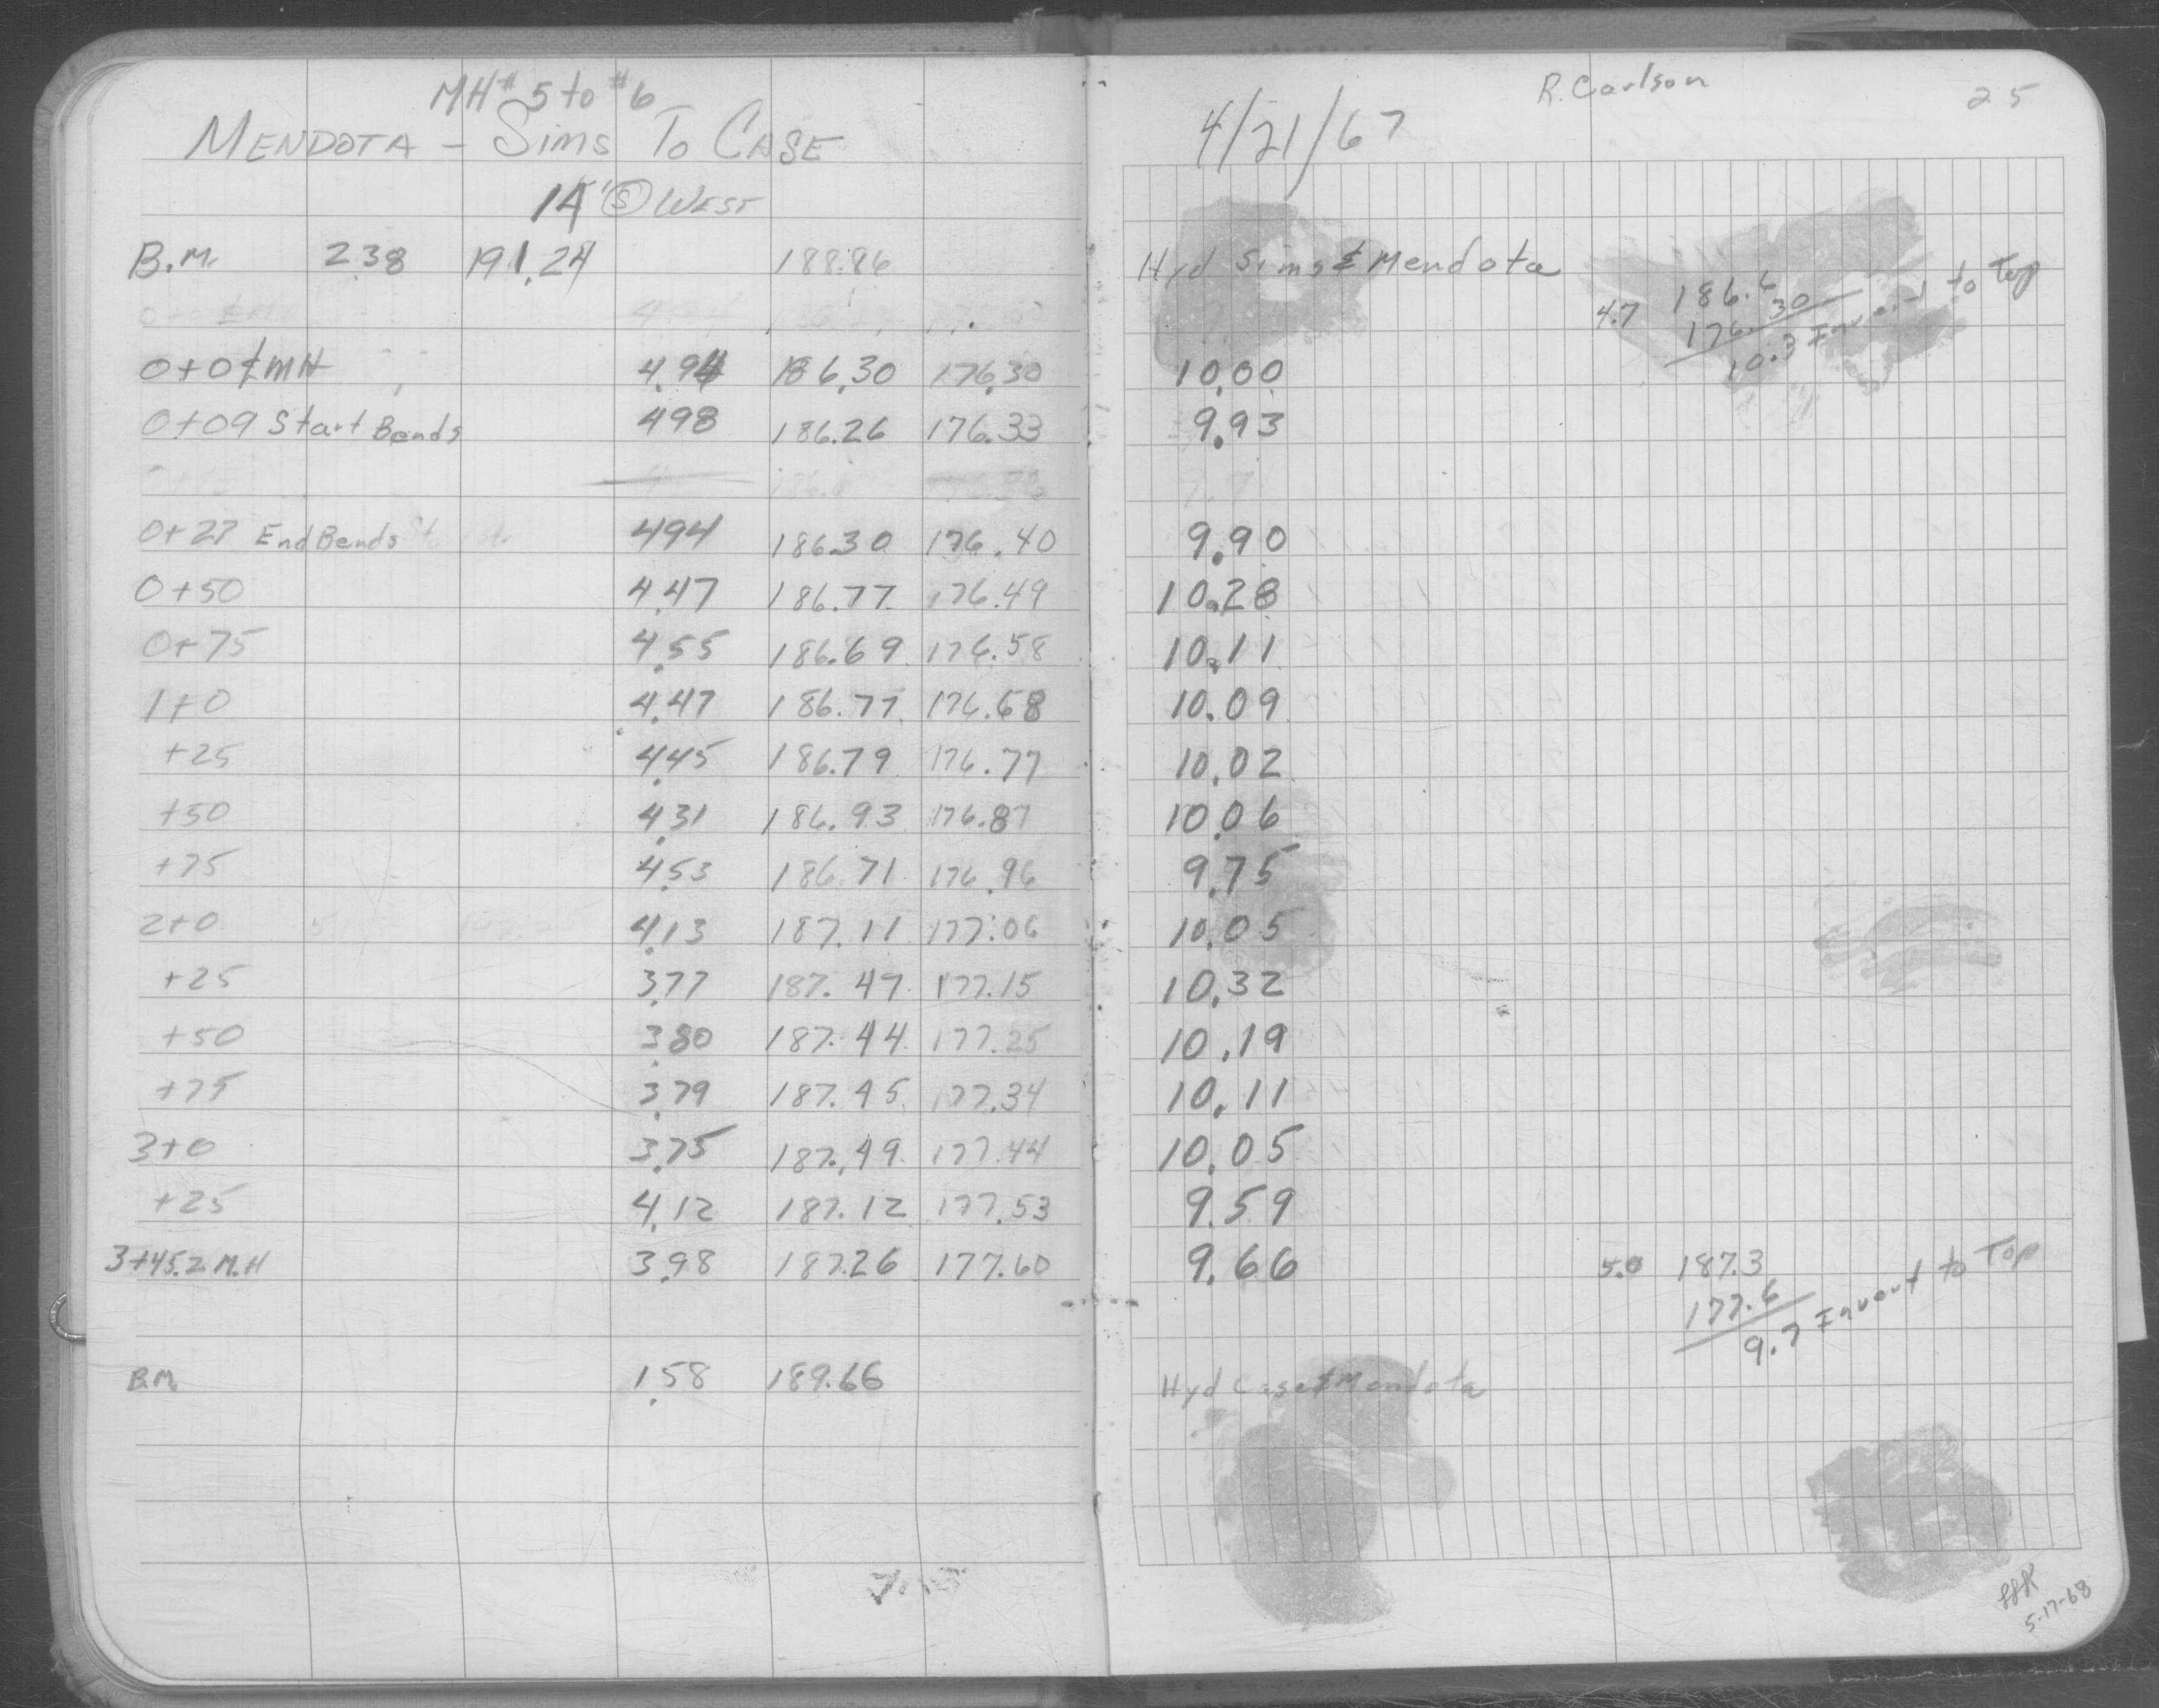 MH# 5 to #6
MENDOTA - Sims To CASE
14' Ⓢ WEST
R. Carlson
25
4/21/67
B.M. 2.38 191.24 188.86 Hyd Sims & Mendota
4.7 186.6
176.30
10.3 Invert to Top
0+0 ℄ MH 4.94 186.30 176.30 10.00
0+09 Start Bends 4.98 186.26 176.33 9.93
0+27 End Bends 4.94 186.30 176.40 9.90
0+50 4.47 186.77 176.49 10.28
0+75 4.55 186.69 176.58 10.11
1+0 4.47 186.77 176.68 10.09
+25 4.45 186.79 176.77 10.02
+50 4.31 186.93 176.87 10.06
+75 4.53 186.71 176.96 9.75
2+0 4.13 187.11 177.06 10.05
+25 3.77 187.47 177.15 10.32
+50 3.80 187.44 177.25 10.19
+75 3.79 187.45 177.34 10.11
3+0 3.75 187.49 177.44 10.05
+25 4.12 187.12 177.53 9.59
3+45.2 M.H 3.98 187.26 177.60 9.66
5.0 187.3
177.6
9.7 Invert to Top
B.M. 1.58 189.66 Hyd Case & Mendota
5-17-68